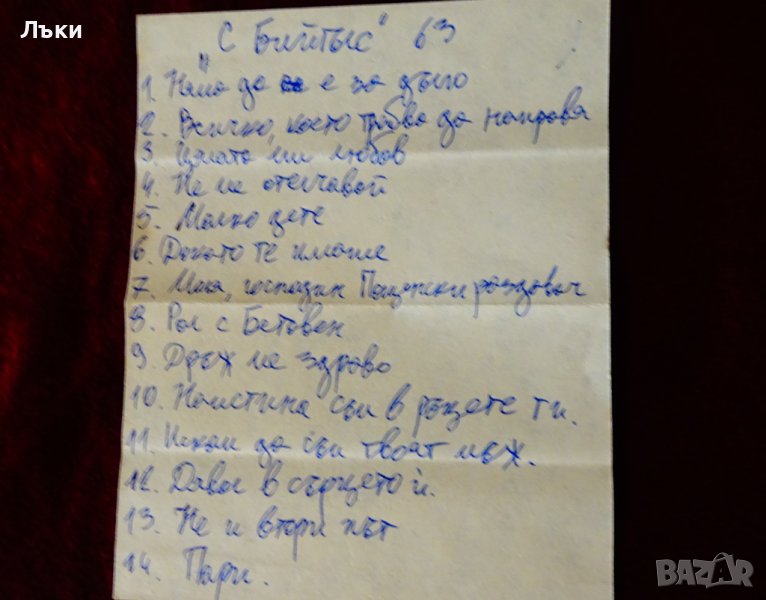 Лъки
„С Бийтълс“ 63
1. Няма да е за дълго
2. Всичко, което трябва да направя
3. Цялата ми любов
4. Не ме отегчавай
5. Малко дете
6. Докато те имаше
7. Моля, господин Пощенски раздавач
8. Рол с Бетовен
9. Дръж ме здраво
10. Наистина съм в ръцете ти.
11. Искам да съм твоят мъж.
12. Дявол в сърцето ѝ.
13. Не и втори път
14. Пари.
BAZAR